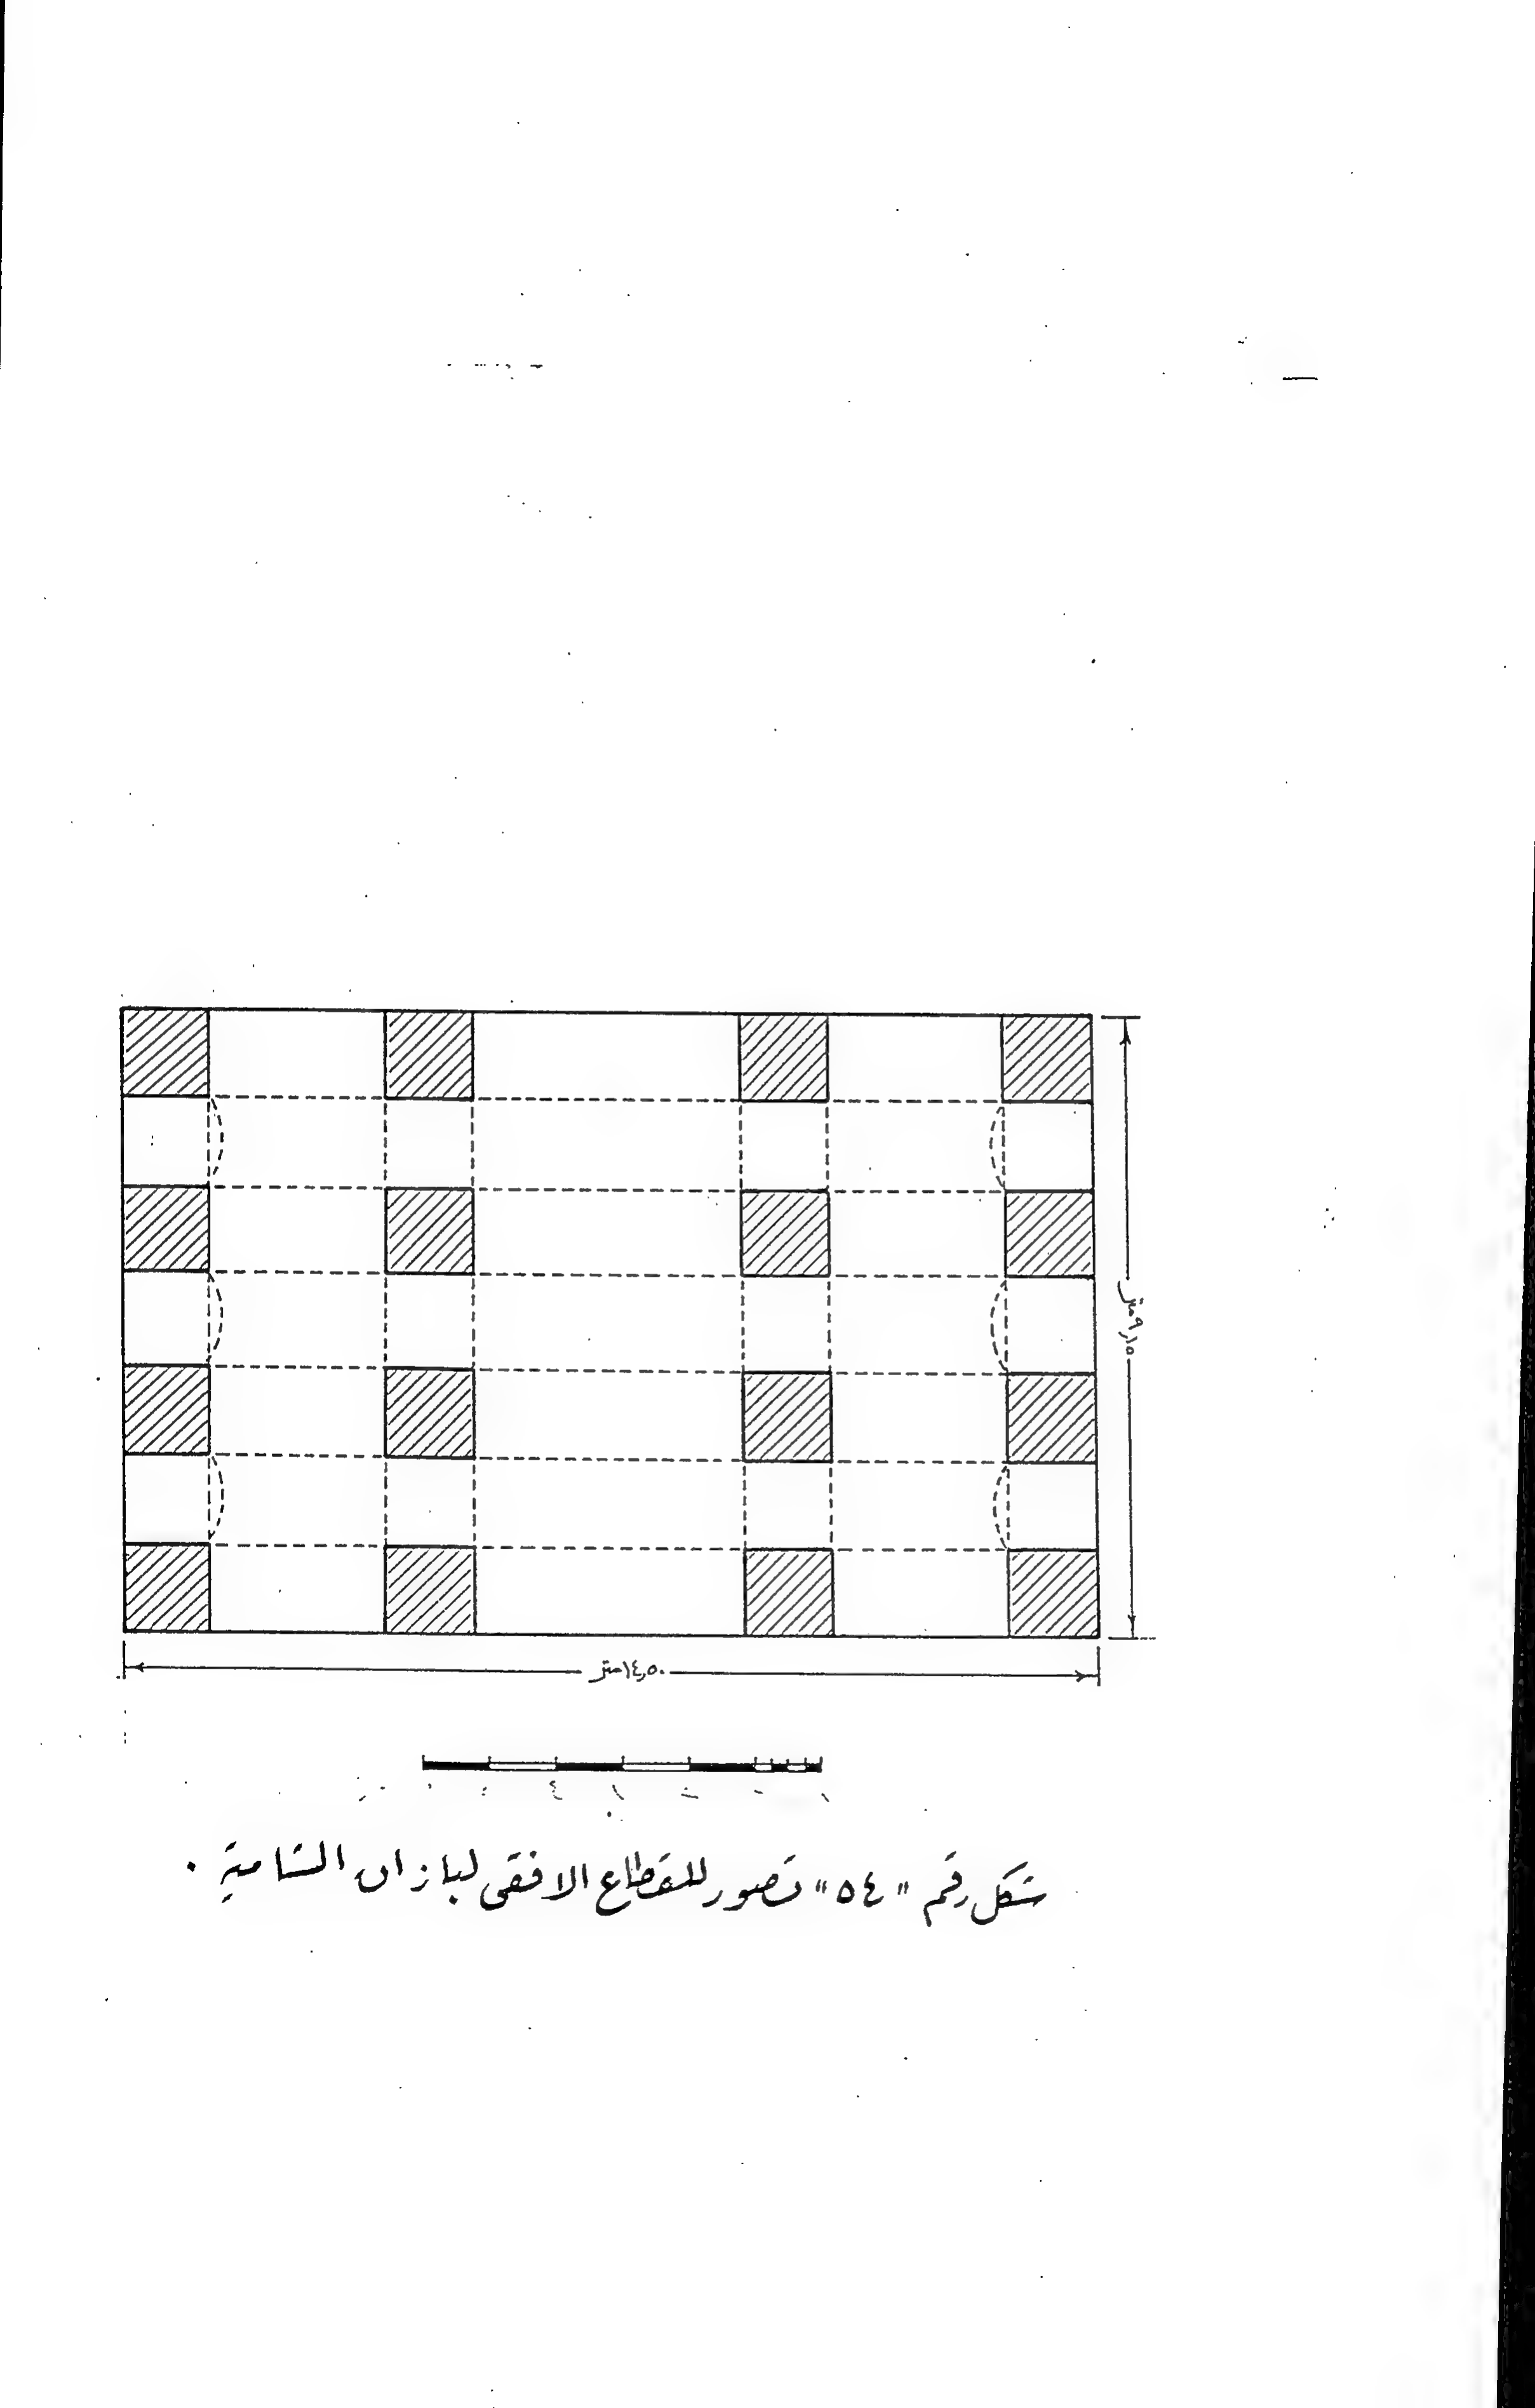 ٩,١٥ متر
١٤,٥٠ متر
شكل رقم "٥٤" تصور للقطاع الافقى لبازان الشامية .